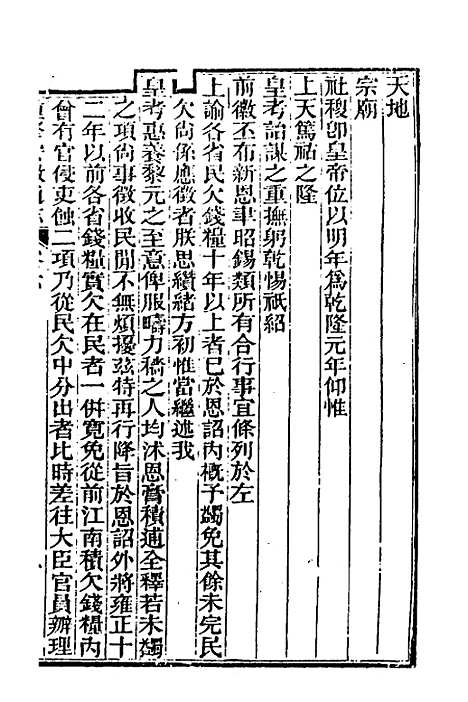 天地
宗廟
社稷卽皇帝位以明年爲乾隆元年仰惟
上天篤祜之隆
皇考詒謀之重撫躬乾惕祇紹
前徽丕布新恩聿昭錫類所有合行事宜條列於左
上諭各省民欠錢糧十年以上者已於恩詔內槪予蠲免其餘未完民
欠尙係應徵者朕思纘緖方初惟當繼述我
皇考惠養黎元之至意俾服疇力穡之人均沐恩膏積逋全釋若未蠲
之項尙事徵收民閒不無煩擾兹特再行降旨於恩詔外將雍正十
二年以前各省錢糧實欠在民者一倂寬免從前江南積欠錢糧內
曾有官侵吏蝕二項乃從民欠中分出者比時差往大臣官員辦理